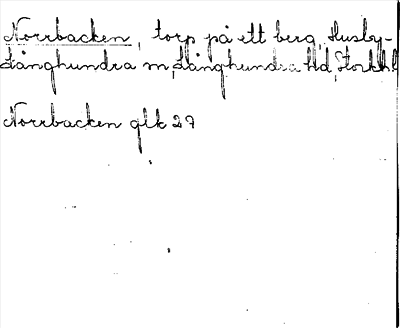 Norrbacken, torp på ett berg, Husby-
Långhundra sn, Långhundra hd, Stockh. l
Norrbacken glk 27